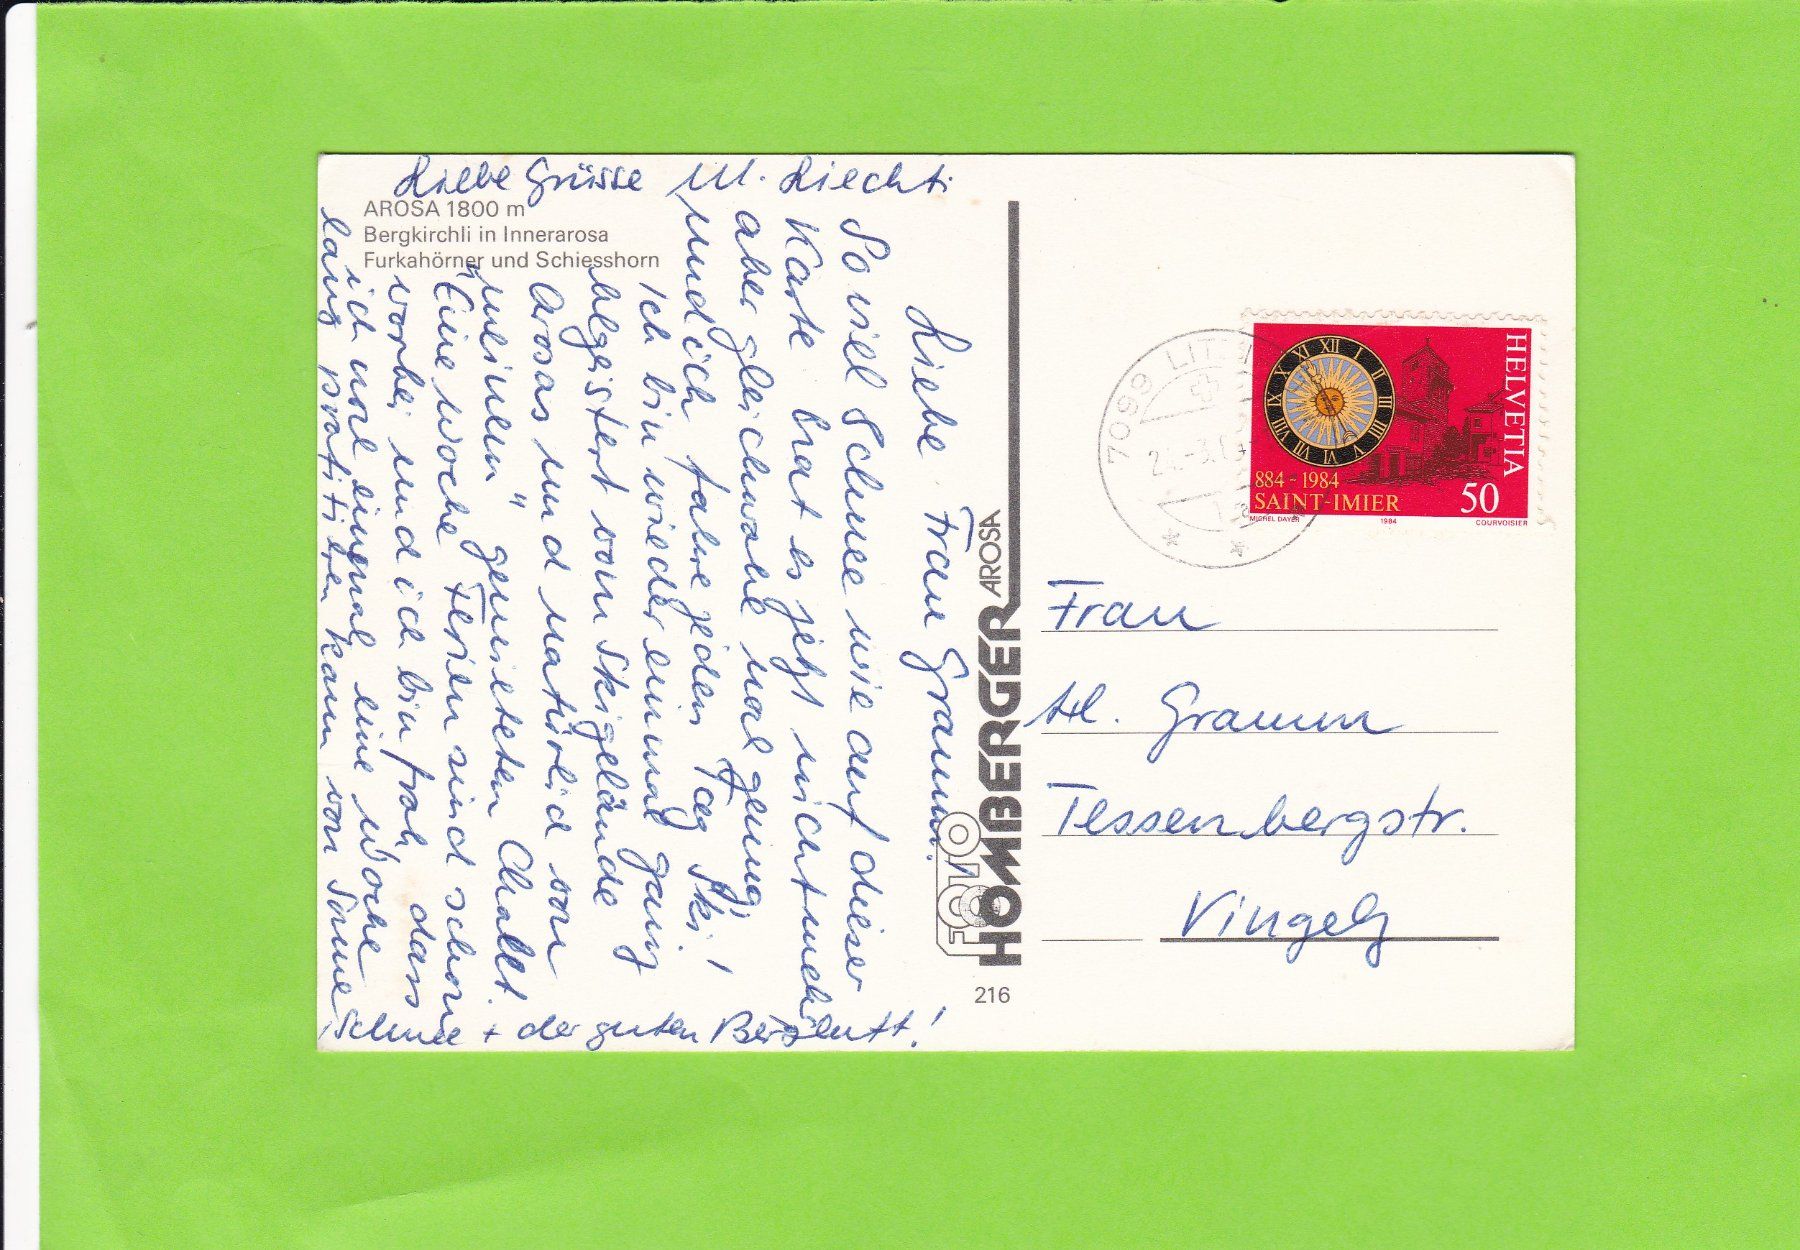 AROSA 1800 m
Bergkirchli in Innerarosa
Furkahörner und Schiesshorn
Liebe Frau Gramm!
So viel Schnee wie auf dieser
Karte hat es jetzt nicht mehr
aber gleichwohl noch genug,
und ich fahre jeden Tag Ski!
Ich bin wieder einmal ganz
begeistert vom Skigelände
Arosas und natürlich von
"meinem" gemieteten Chalet.
Eine Woche Ferien sind schon
vorbei und ich bin froh, dass
ich noch einmal eine Woche
lang profitieren kann von Sonne
Schnee + der guten Bergluft!
Liebe Grüsse M. Liechti
FOTO
HOMBERGER AROSA
216
7099
HELVETIA
XII I II III IIII V VI VII VIII IX X XI
884-1984
SAINT-IMIER
50
MICHEL DAYER 1984 COURVOISIER
Frau
Hl. Gramm
Tessenbergstr.
Vingelz